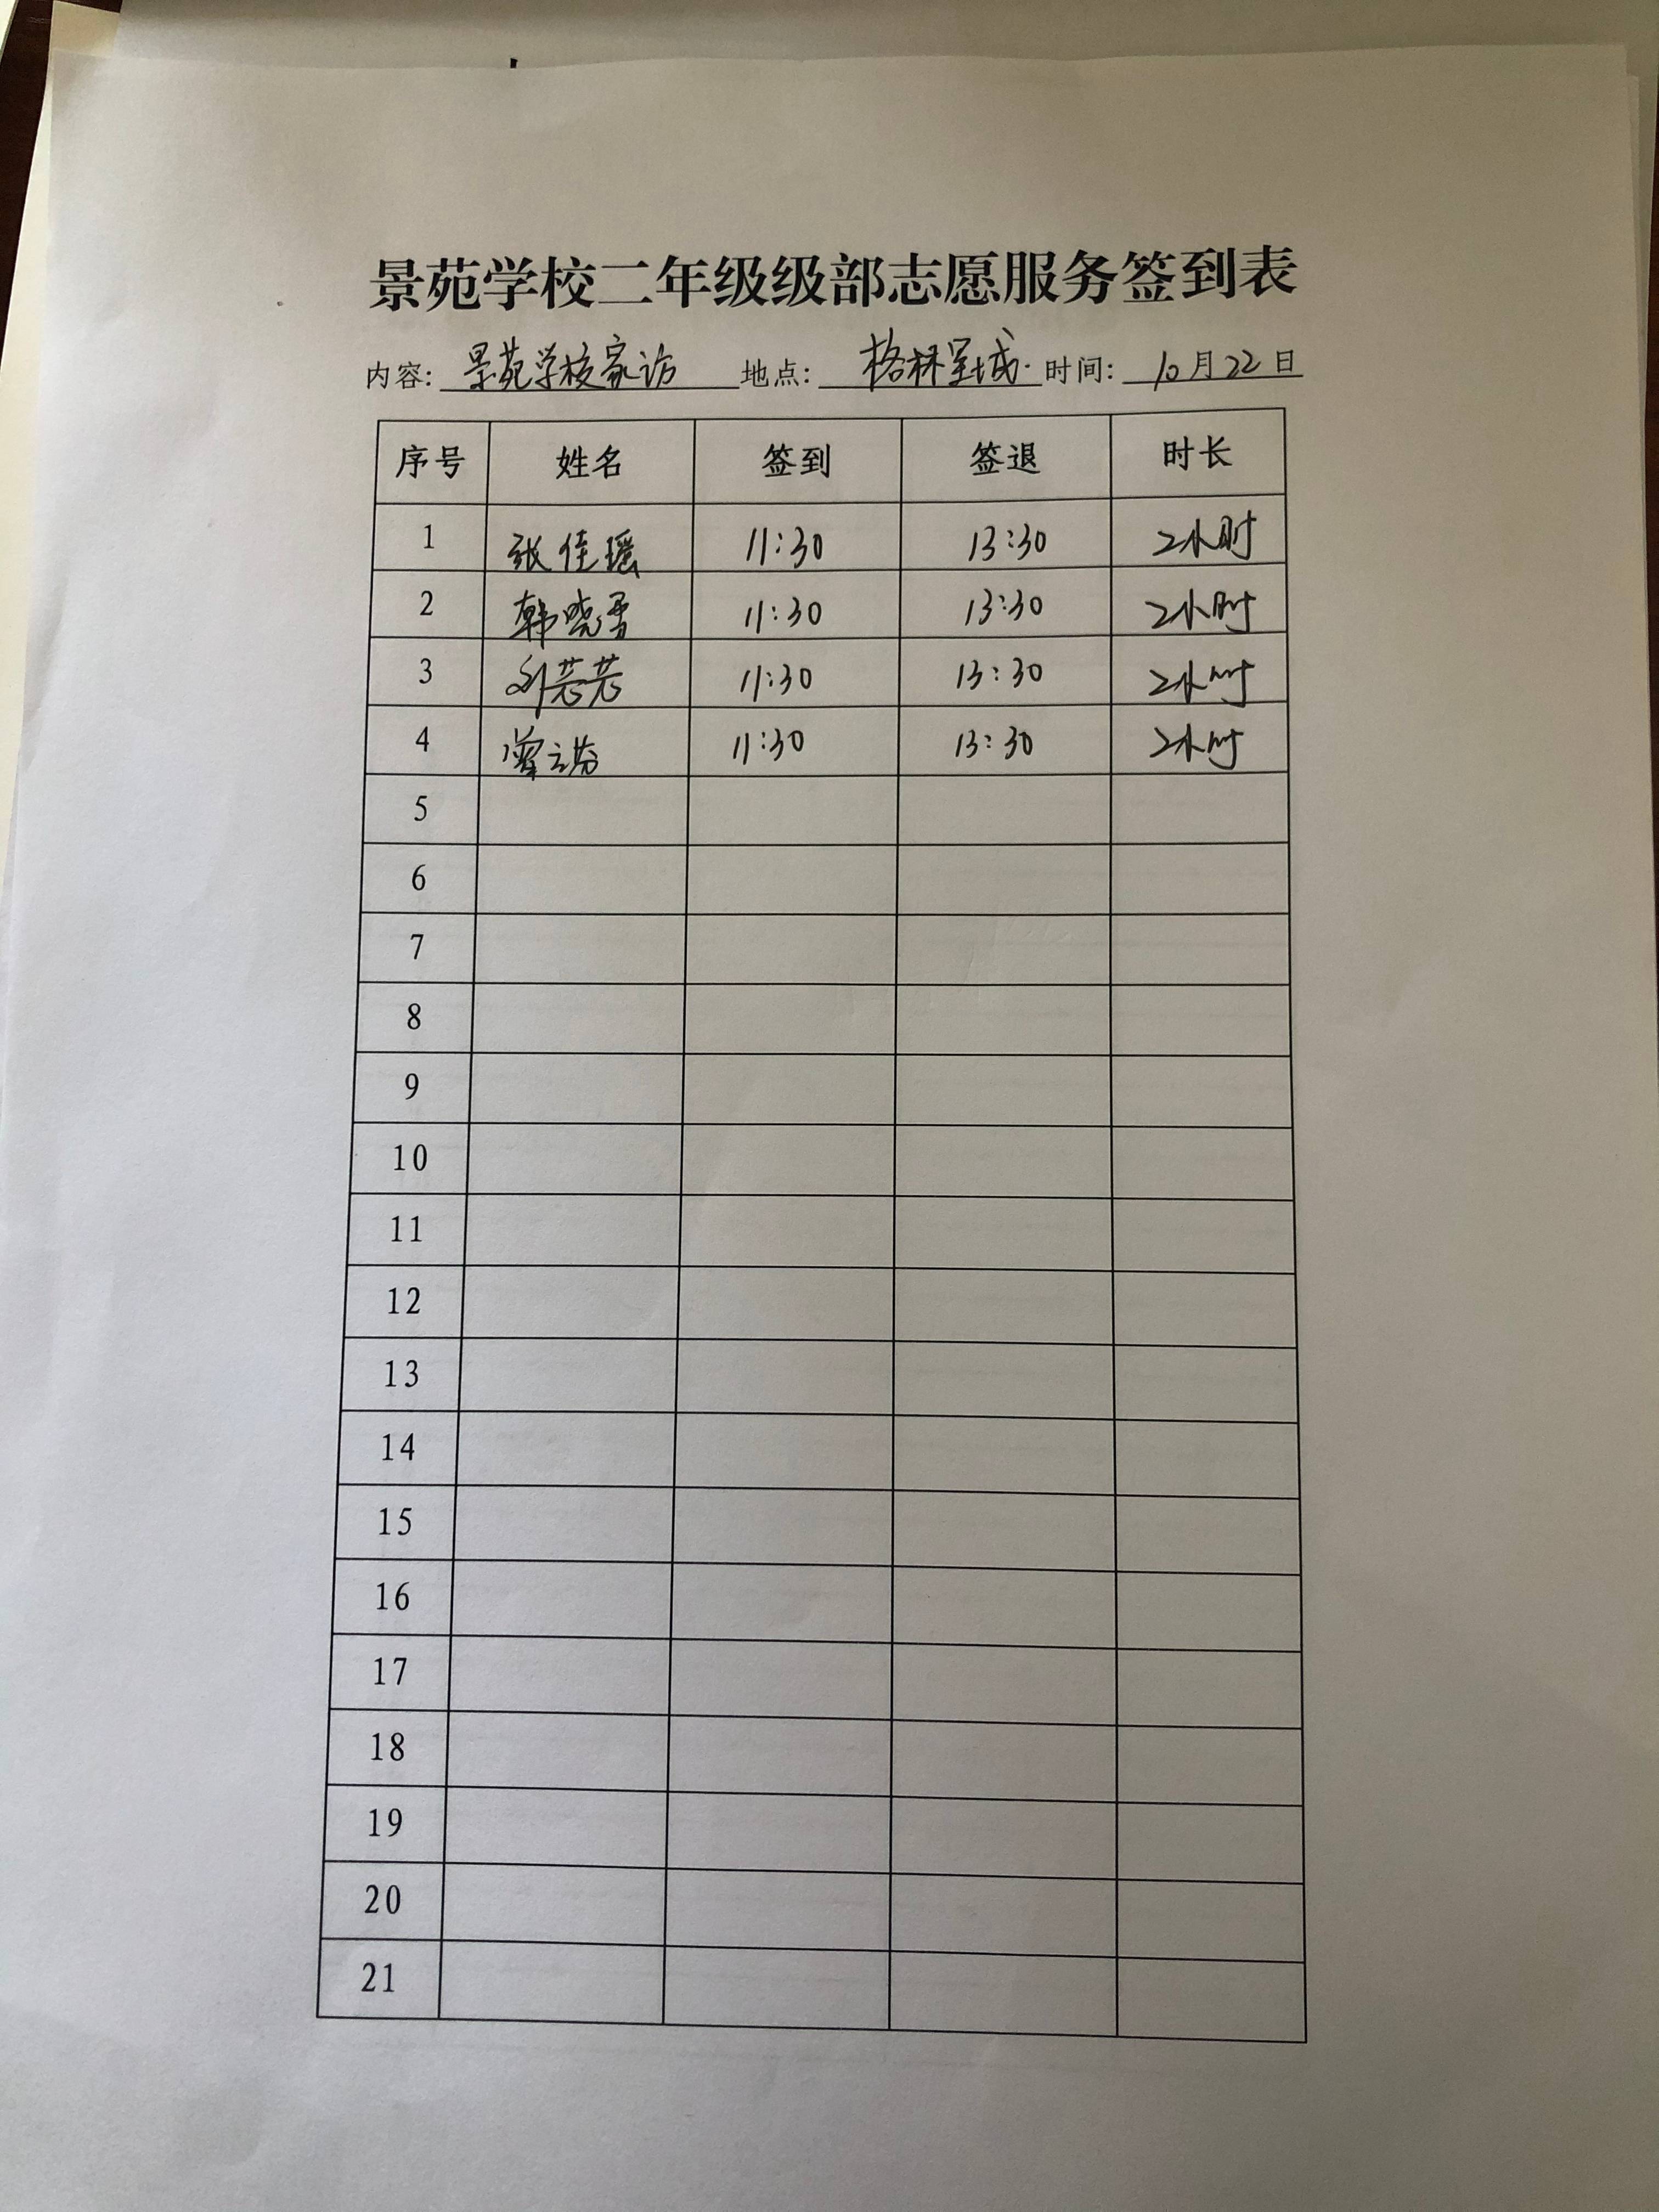 景苑学校二年级级部志愿服务签到表
内容: 景苑学校家访 地点: 格林星城 时间: 10月22日
序号 姓名 签到 签退 时长
1 张佳瑶 11:30 13:30 2小时
2 韩晓雪 11:30 13:30 2小时
3 刘芸芸 11:30 13:30 2小时
4 11:30 13:30 2小时
5
6
7
8
9
10
11
12
13
14
15
16
17
18
19
20
21